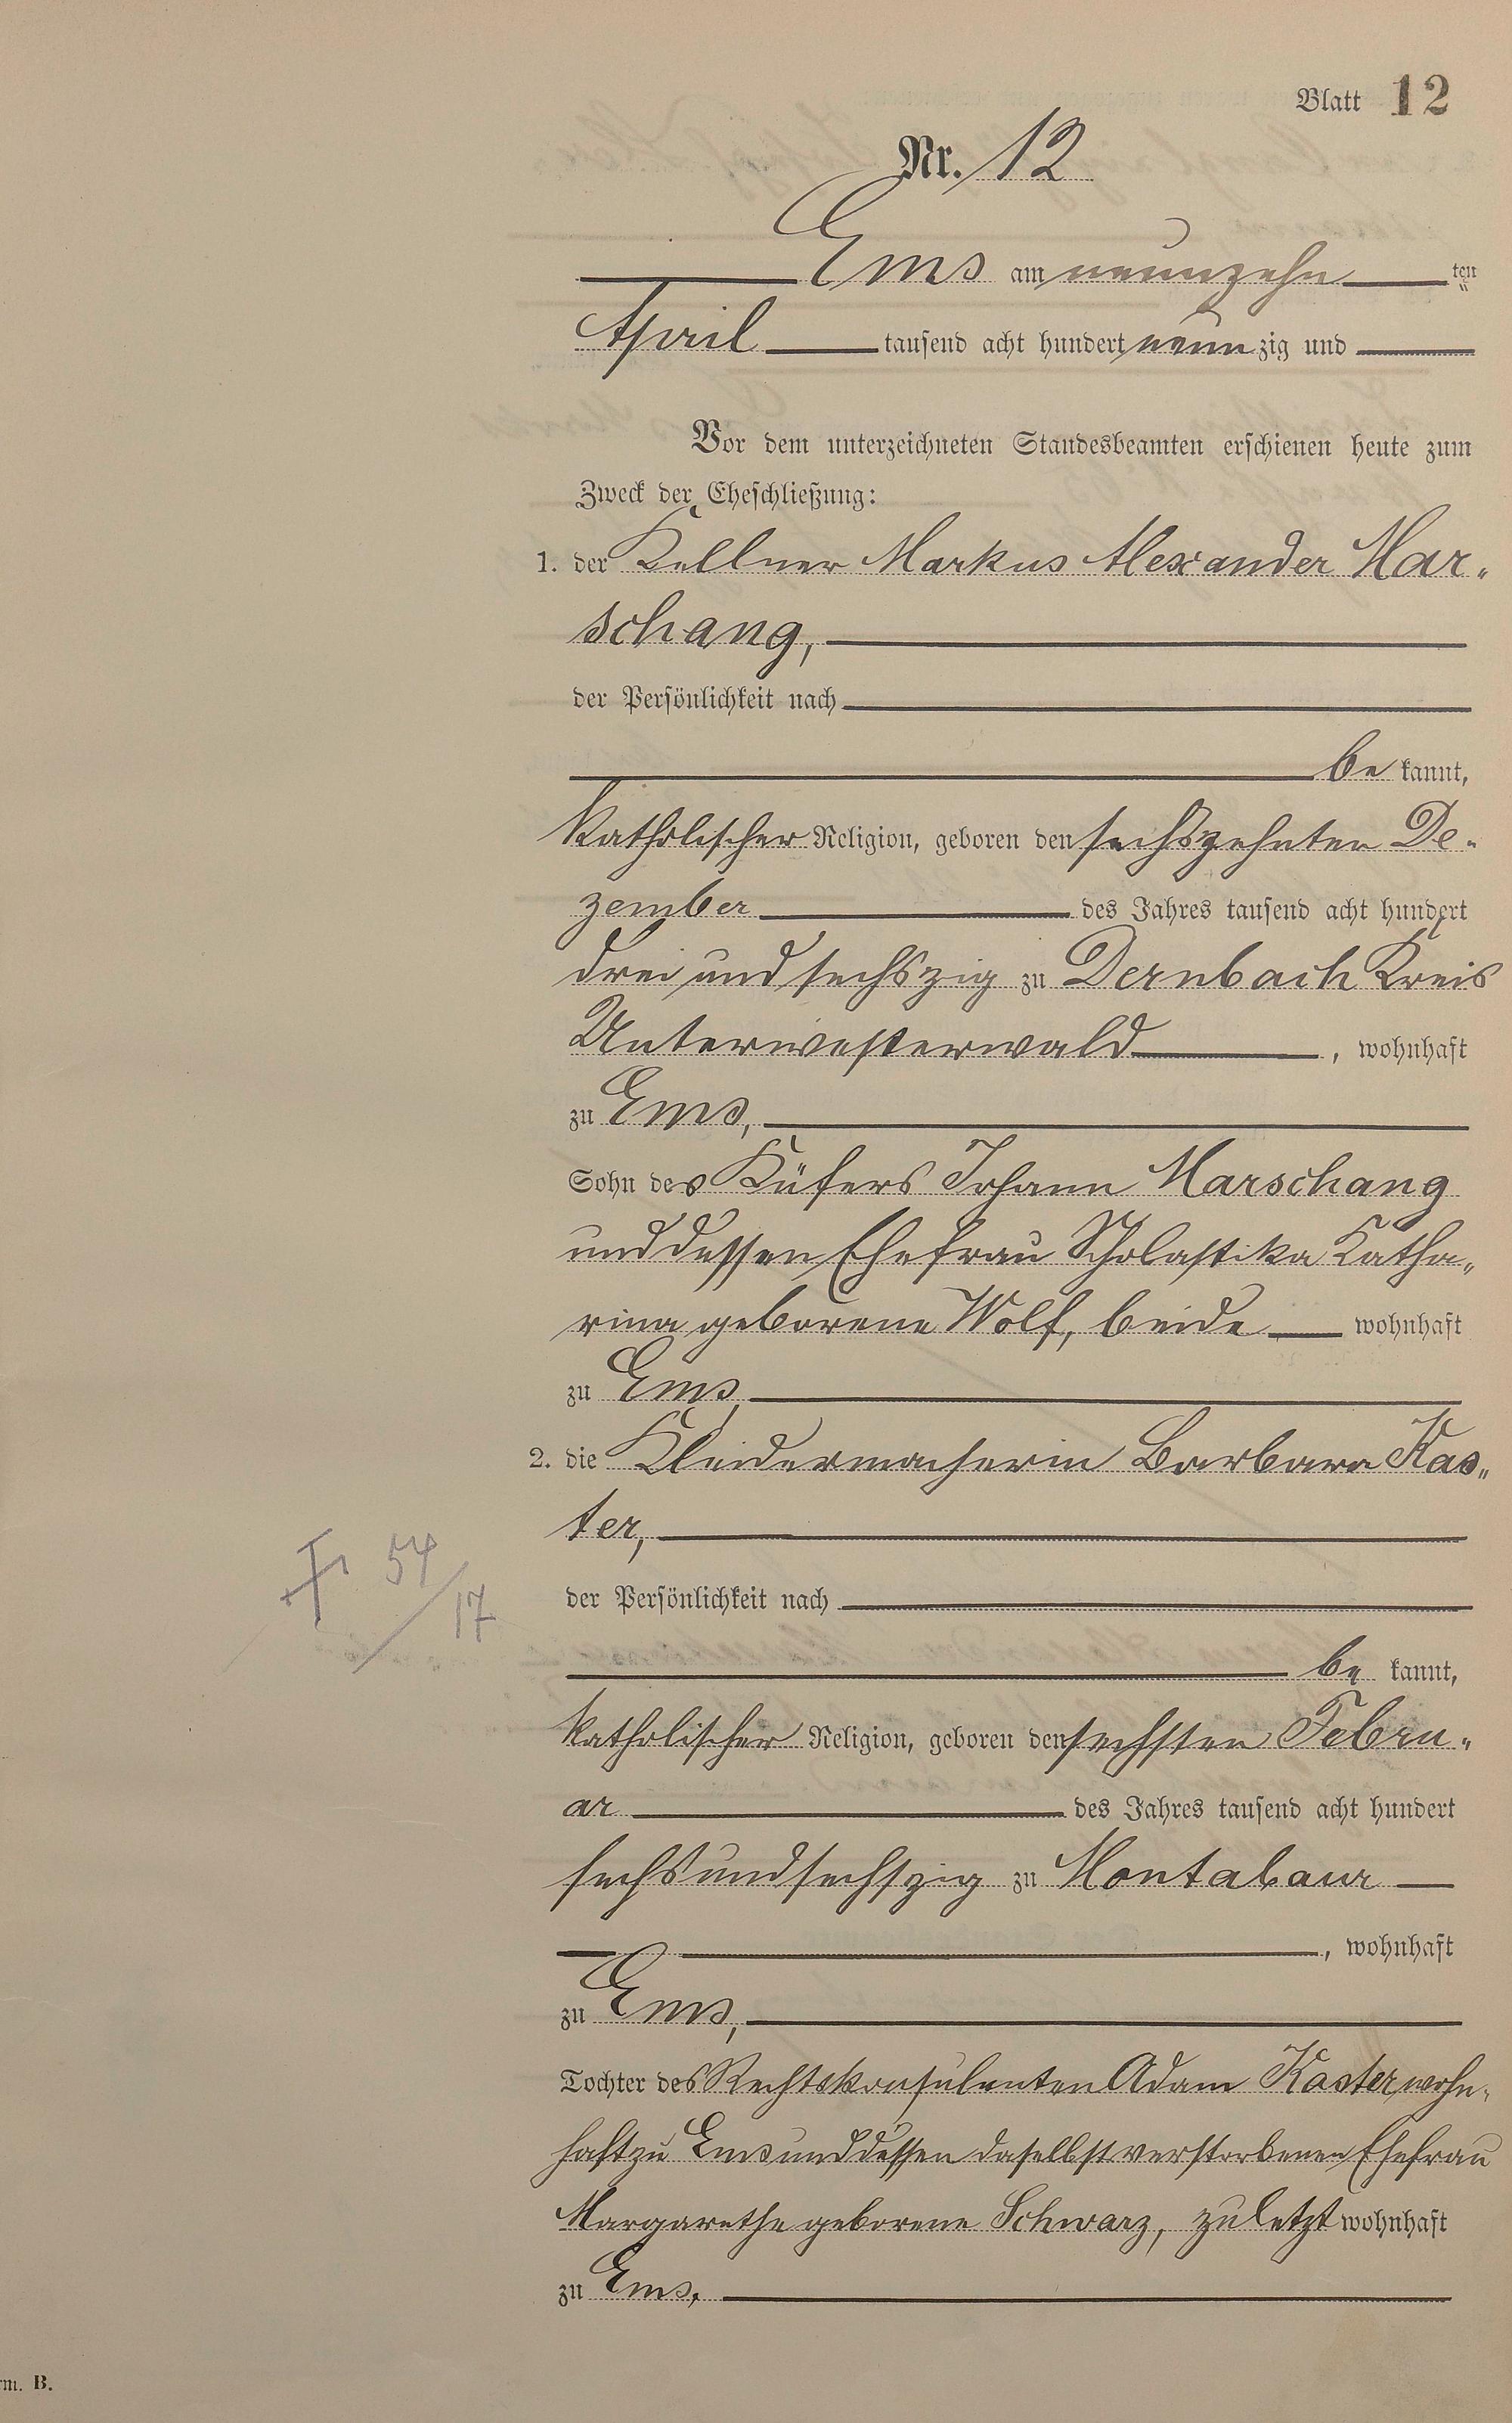 Blatt 12
Nr. 12
Ems am neunzehn ten
April tausend acht hundert neunzig und
Vor dem unterzeichneten Standesbeamten erschienen heute zum
Zweck der Eheschließung:
1. der Kellner Markus Alexander Mar„
schang,
der Persönlichkeit nach
be kannt,
katholischer Religion, geboren den sechszehnten De„
zember des Jahres tausend acht hundert
drei und sechszig zu Dernbach Kreis
Unterwesterwald, wohnhaft
zu Ems,
Sohn des Küfers Johann Marschang
und dessen Ehefrau Scholastika Katha„
rina geborene Wolf, beide wohnhaft
zu Ems,
2. die Kleidermacherin Barbara Kas„
ter,
der Persönlichkeit nach
+ 54/17
be kannt,
katholischer Religion, geboren den sechsten Febru„
ar des Jahres tausend acht hundert
sechs und sechszig zu Montabaur
, wohnhaft
zu Ems,
Tochter des Rechtskonsulenten Adam Kaster, wohn„
haft zu Ems und dessen daselbst verstorbenen Ehefrau
Margarethe geborene Schwarz, zuletzt wohnhaft
zu Ems,
rm. B.